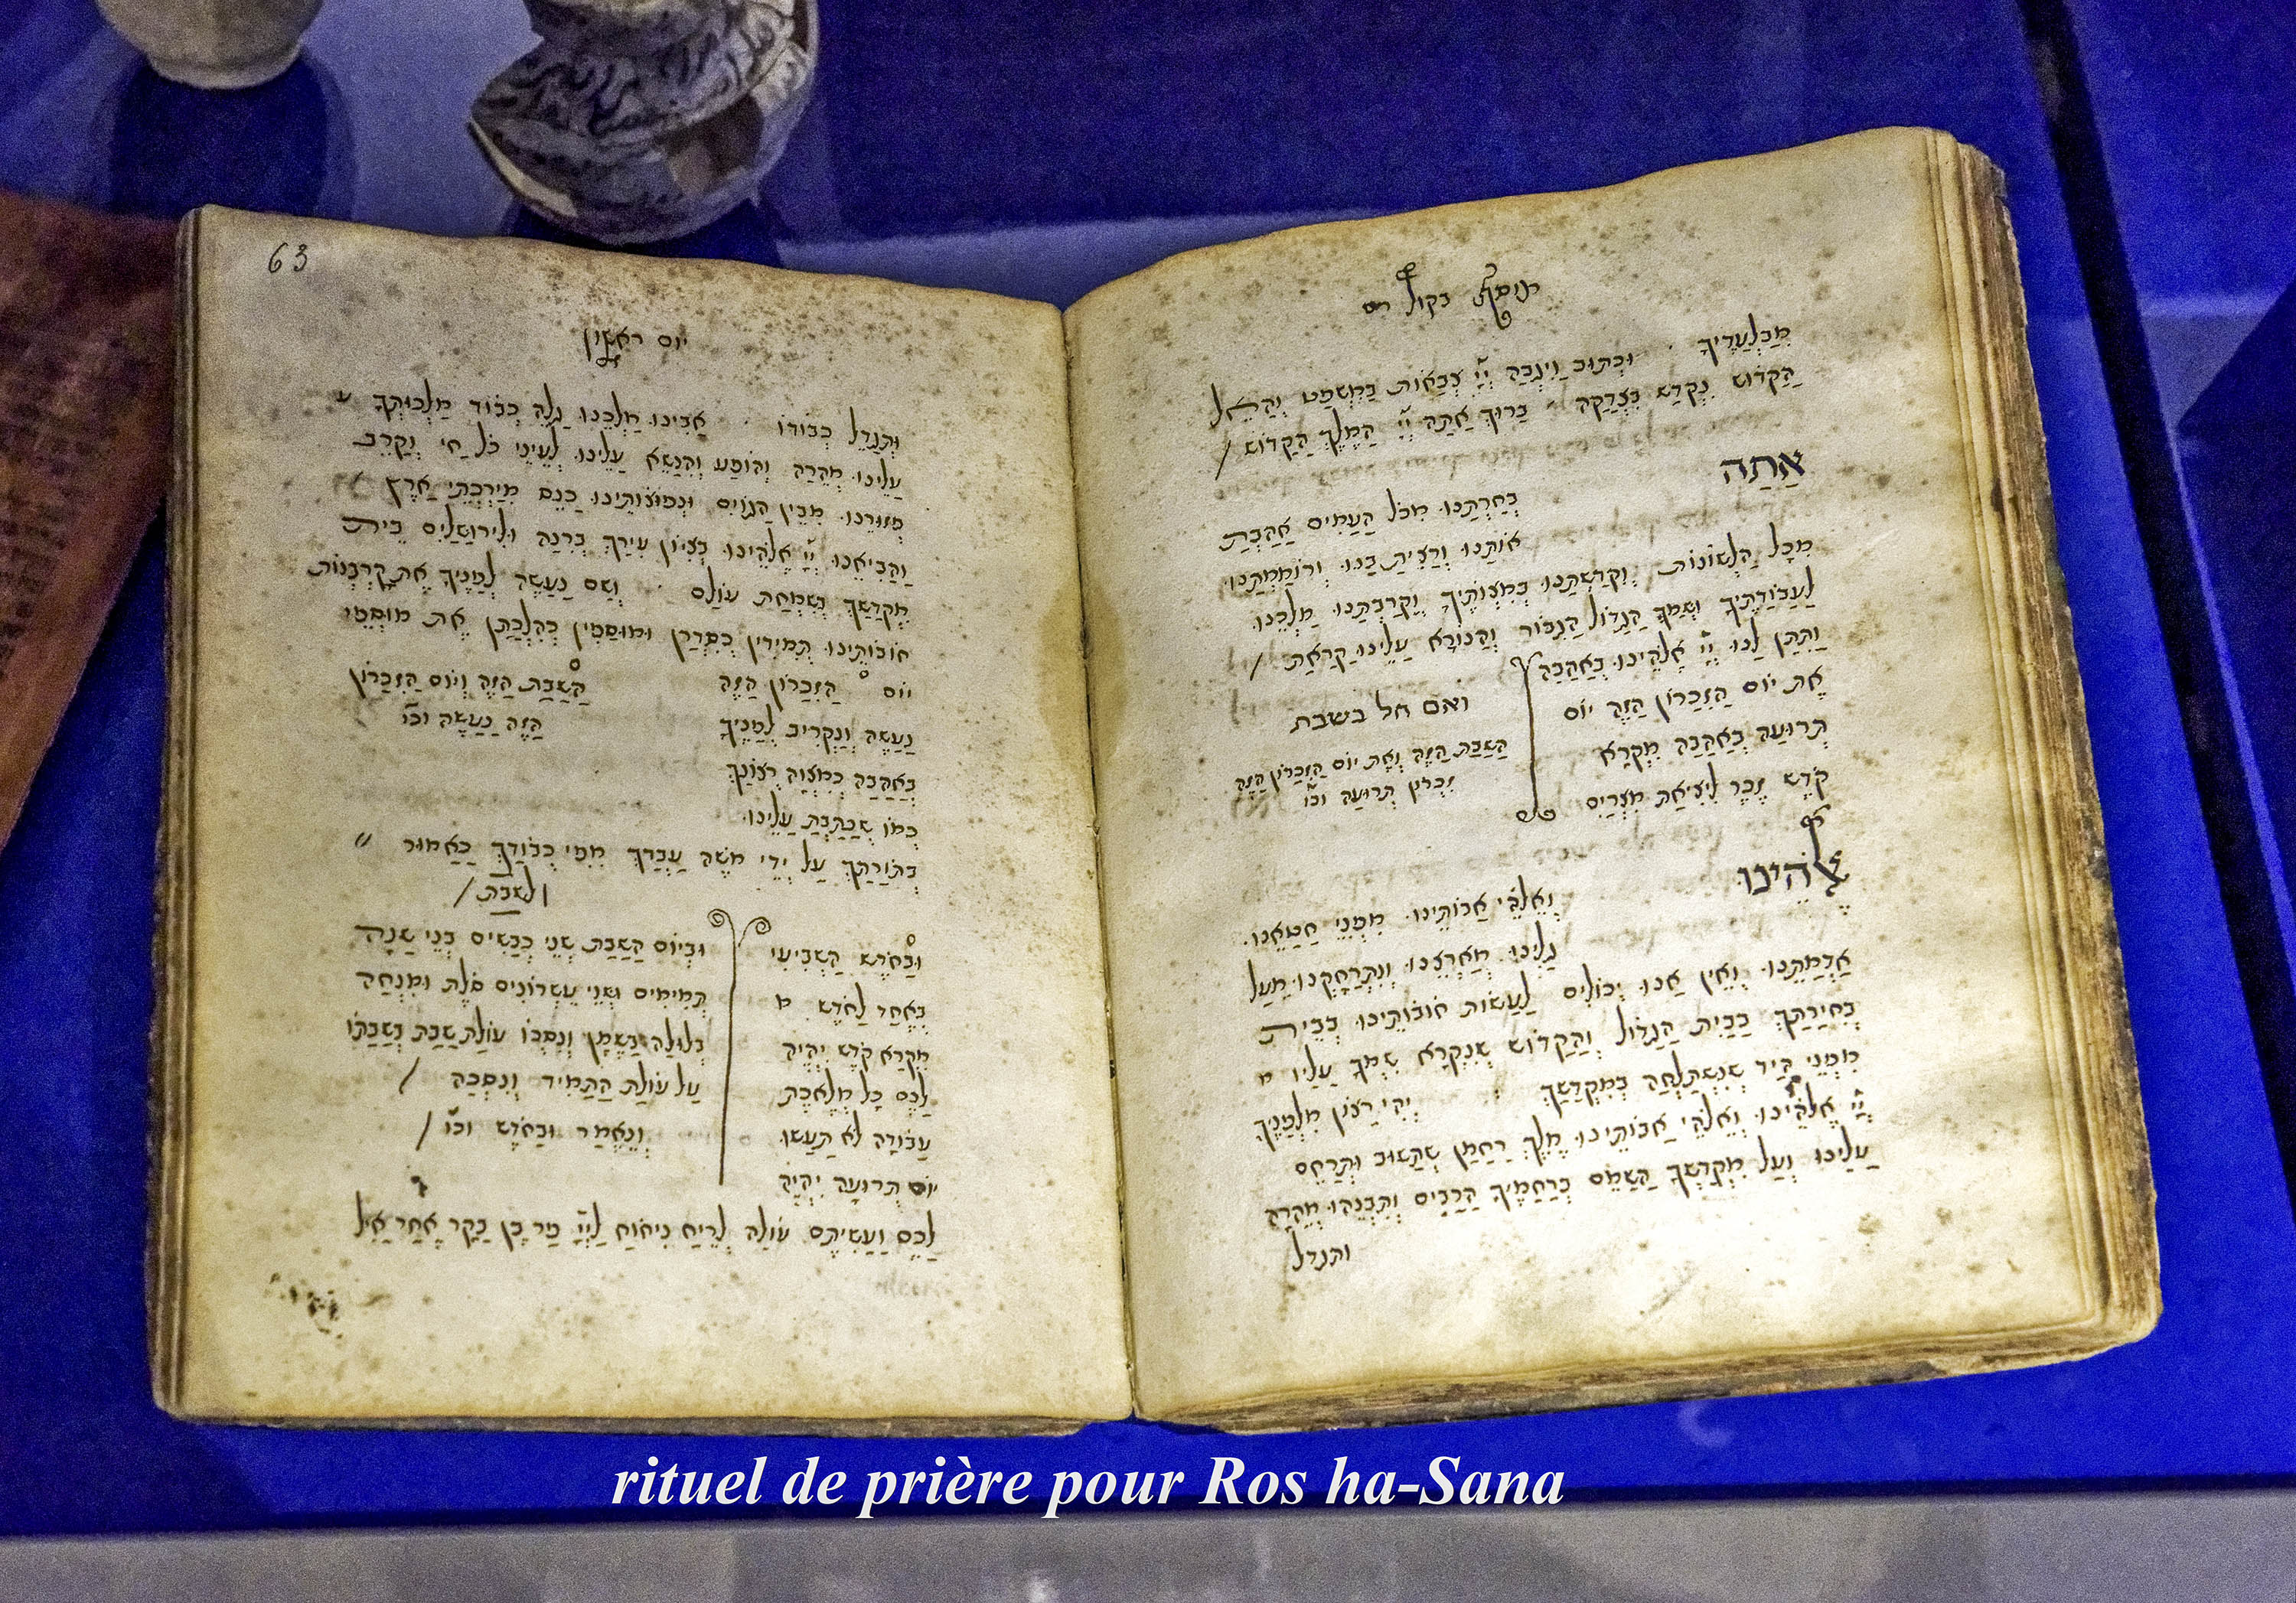 בקול רם
מִבַּלְעָדֶיךָ וּכְתוּב וַיִּגְבַּהּ יְיָ צְבָאוֹת בַּמִּשְׁפָּט וְהָאֵל
הַקָּדוֹשׁ נִקְדַּשׁ בִּצְדָקָה בָּרוּךְ אַתָּה יְיָ הַמֶּלֶךְ הַקָּדוֹשׁ /
אַתָּה
בְחַרְתָּנוּ מִכֹּל הָעַמִּים אָהַבְתָּ
אוֹתָנוּ וְרָצִיתָ בָּנוּ וְרוֹמַמְתָּנוּ
מִכָּל הַלְּשׁוֹנוֹת וְקִדַּשְׁתָּנוּ בְּמִצְוֹתֶיךָ וְקֵרַבְתָּנוּ מַלְכֵּנוּ
לַעֲבוֹדָתֶיךָ וְשִׁמְךָ הַגָּדוֹל הַגִּבּוֹר וְהַנּוֹרָא עָלֵינוּ קָרָאתָ /
וַתִּתֶּן לָנוּ יְיָ אֱלֹהֵינוּ בְּאַהֲבָה
אֶת יוֹם הַזִּכָּרוֹן הַזֶּה יוֹם
תְּרוּעָה בְּאַהֲבָה מִקְרָא
קֹדֶשׁ זֵכֶר לִיצִיאַת מִצְרַיִם
ואם חל בשבת
הַשַּׁבָּת הַזֶּה וְאֶת יוֹם הַזִּכָּרוֹן הַזֶּה
זִכְרוֹן תְּרוּעָה וכו
אֱלֹהֵינוּ
וֵאלֹהֵי אֲבוֹתֵינוּ מִפְּנֵי חֲטָאֵנוּ
גָּלִינוּ מֵאַרְצֵנוּ וְנִתְרַחַקְנוּ מֵעַל
אַדְמָתֵנוּ וְאֵין אָנוּ יְכוֹלִים לַעֲשׂוֹת חוֹבוֹתֵינוּ בְּבֵית
בְּחִירָתֶךָ בַּבַּיִת הַגָּדוֹל וְהַקָּדוֹשׁ שֶׁנִּקְרָא שִׁמְךָ עָלָיו מ
מִפְּנֵי הַיָּד שֶׁנִּשְׁתַּלְּחָה בְּמִקְדָּשֶׁךָ יְהִי רָצוֹן מִלְּפָנֶיךָ
יְיָ אֱלֹהֵינוּ וֵאלֹהֵי אֲבוֹתֵינוּ מֶלֶךְ רַחֲמָן שֶׁתָּשׁוּב וּתְרַחֵם
עָלֵינוּ וְעַל מִקְדָּשְׁךָ הַשָּׁמֵם בְּרַחֲמֶיךָ הָרַבִּים וְתִבְנֵהוּ מְהֵרָה
ותגדל
63
יום ראשון
וּתְגַדֵּל כְּבוֹדוֹ אָבִינוּ מַלְכֵּנוּ גַּלֵּה כְּבוֹד מַלְכוּתֶךָ ע
עָלֵינוּ מְהֵרָה וְהוֹפַע וְהִנָּשֵׂא עָלֵינוּ לְעֵינֵי כֹּל חַי וְקָרֵב
פְּזוּרֵנוּ מִבֵּין הַגּוֹיִם וּנְפוּצוֹתֵינוּ כַּנֵּס מִיַּרְכְּתֵי אָרֶץ
וַהֲבִיאֵנוּ יְיָ אֱלֹהֵינוּ בְּצִיּוֹן עִירָךְ בְּרִנָּה וְלִירוּשָׁלַיִם בֵּית
מִקְדָּשֶׁךָ בְּשִׂמְחַת עוֹלָם וְשָׁם נַעֲשֶׂה לְפָנֶיךָ אֶת קָרְבְּנוֹת
חוֹבוֹתֵינוּ תְּמִידִין כְּסִדְרָן וּמוּסָפִין כְּהִלְכָתָן אֶת מוּסְפֵי
יוֹם הַזִּכָּרוֹן הַזֶּה
נַעֲשֶׂה וְנַקְרִיב לְפָנֶיךָ
בְּאַהֲבָה כְּמִצְוָה רְצוֹנָךְ
כְּמוֹ שֶׁכָּתַבְתָּ עָלֵינוּ
הַשַּׁבָּת הַזֶּה וְיוֹם הַזִּכָּרוֹן
הַזֶּה נַעֲשֶׂה וכו
בְּתוֹרָתָךְ עַל יְדֵי מֹשֶׁה עַבְדָּךְ מִפִּי כְבוֹדָךְ כָּאָמוּר //
ולשבת /
וּבַחֹדֶשׁ הַשְּׁבִיעִי
בְּאֶחָד לַחֹדֶשׁ מ
מִקְרָא קֹדֶשׁ יִהְיֶה
לָכֶם כָּל מְלֶאכֶת
עֲבוֹדָה לֹא תַעֲשׂוּ
יוֹם תְּרוּעָה יִהְיֶה
וּבְיוֹם הַשַּׁבָּת שְׁנֵי כְבָשִׂים בְּנֵי שָׁנָה
תְּמִימִים וּשְׁנֵי עֶשְׂרוֹנִים סֹלֶת וּמִנְחָה
בְּלוּלָה בַשֶּׁמֶן וְנִסְכּוֹ עוֹלַת שַׁבַּת בְּשַׁבַּתּוֹ
עַל עוֹלַת הַתָּמִיד וְנִסְכָּהּ /
וְנֶאֱמַר וּבַחֹדֶשׁ וכו /
לָכֶם וַעֲשִׂיתֶם עוֹלָה לְרֵיחַ נִיחוֹחַ לַיְיָ פַּר בֶּן בָּקָר אֶחָד אַיִל
rituel de prière pour Ros ha-Sana